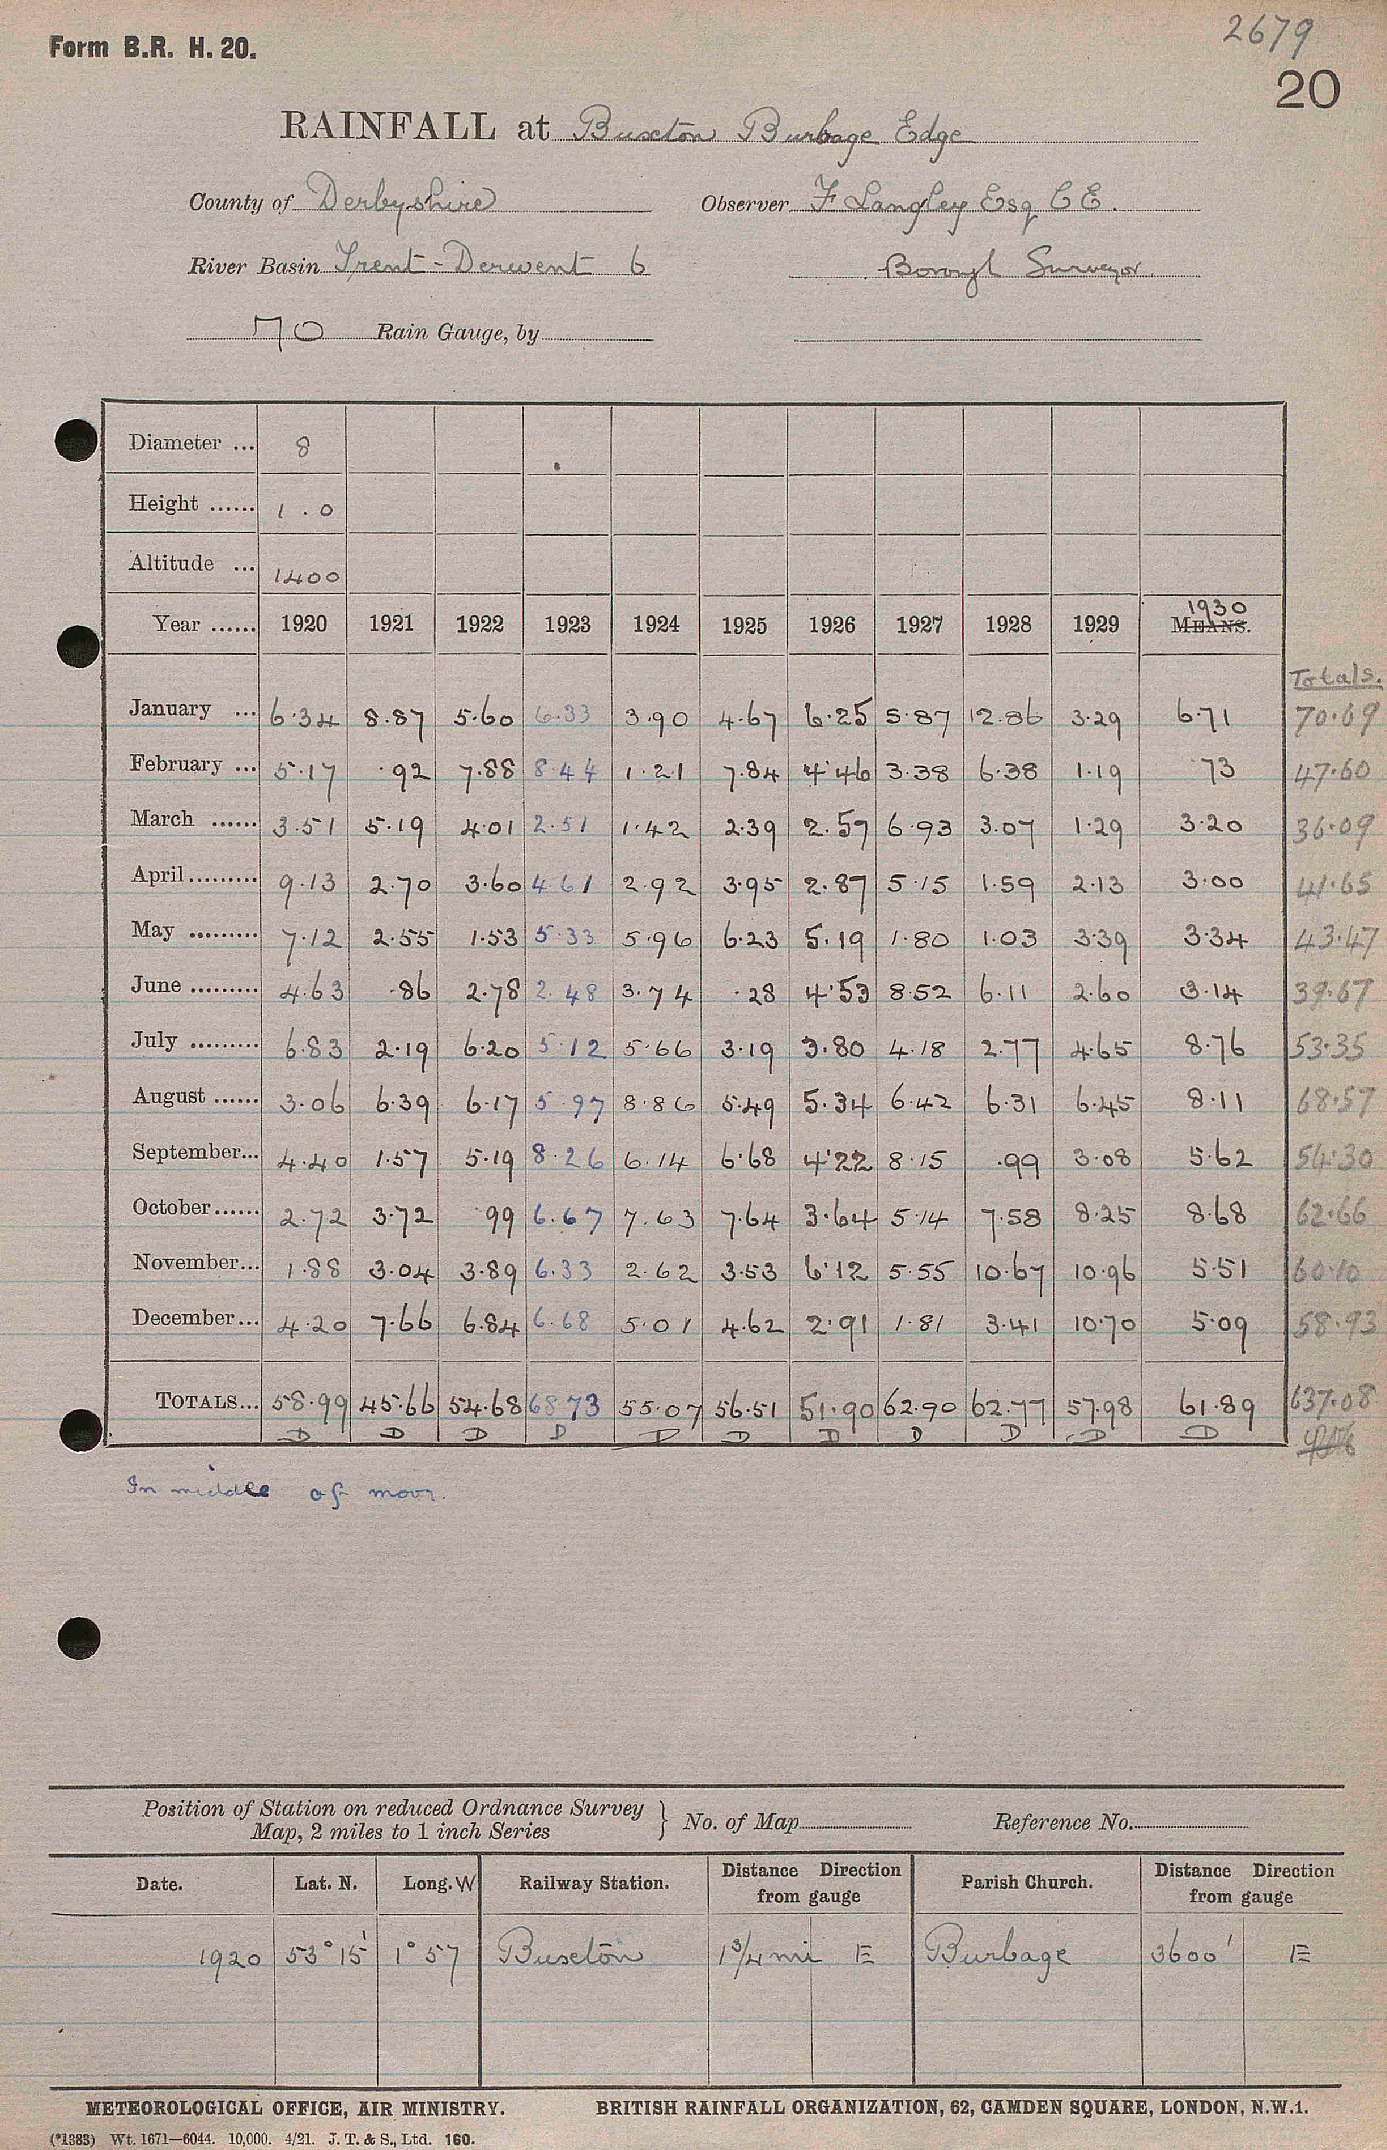 2679
Form B.R. H. 20.
20
RAINFALL at Buxton Burbage Edge
County of Derbyshire Observer F Langley Esq C E.
River Basin Trent - Derwent 6 Borough Surveyor.
Rain Gauge, by
Diameter ... 8
Height ...... 1 . 0
Altitude ... 1400
1930
Year ...... 1920 1921 1922 1923 1924 1925 1926 1927 1928 1929 MEANS.
Totals.
January ... 6.34 8.87 5.60 6.33 3.90 4.67 6.25 5.87 12.86 3.29 6.71 70.69
February ... 5.17 .92 7.88 8.44 1.21 7.84 4.46 3.38 6.38 1.19 .73 47.60
March ...... 3.51 5.19 4.01 2.51 1.42 2.39 2.57 6.93 3.07 1.29 3.20 36.09
April ......... 9.13 2.70 3.60 4.61 2.92 3.95 2.87 5.15 1.59 2.13 3.00 41.65
May ......... 7.12 2.55 1.53 5.33 5.96 6.23 5.19 1.80 1.03 3.39 3.34 43.47
June ......... 4.63 .86 2.78 2.48 3.74 .28 4.53 8.52 6.11 2.60 3.14 39.67
July ......... 6.83 2.19 6.20 5.12 5.66 3.19 3.80 4.18 2.77 4.65 8.76 53.35
August ...... 3.06 6.39 6.17 5.97 8.86 5.49 5.34 6.42 6.31 6.45 8.11 68.57
September... 4.40 1.57 5.19 8.26 6.14 6.68 4.22 8.15 .99 3.08 5.62 54.30
October...... 2.72 3.72 .99 6.67 7.63 7.64 3.64 5.14 7.58 8.25 8.68 62.66
November... 1.88 3.04 3.89 6.33 2.62 3.53 6.12 5.55 10.67 10.96 5.51 60.10
December... 4.20 7.66 6.84 6.68 5.01 4.62 2.91 1.81 3.41 10.70 5.09 58.93
TOTALS... 58.99 45.66 54.68 68.73 55.07 56.51 51.90 62.90 62.77 57.98 61.89 637.08
D D D D D D D D D D D
In middle of moor.
Position of Station on reduced Ordnance Survey
Map, 2 miles to 1 inch Series } No. of Map Reference No.
Date. Lat. N. Long. W Railway Station. Distance Direction from gauge Parish Church. Distance Direction from gauge
1920 53° 15' 1° 57 Buxton 1¾ mi E Burbage 3600' E
METEOROLOGICAL OFFICE, AIR MINISTRY. BRITISH RAINFALL ORGANIZATION, 62, CAMDEN SQUARE, LONDON, N.W.1.
(*1383) Wt. 1671—6044. 10,000. 4/21. J. T. & S., Ltd. 160.